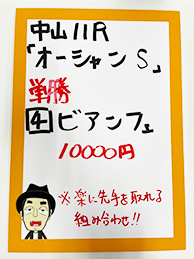 中山11R
「オーシャンS」
単勝
4 ビアンフェ
10000円
※楽に先手を取れる
組み合わせ!!